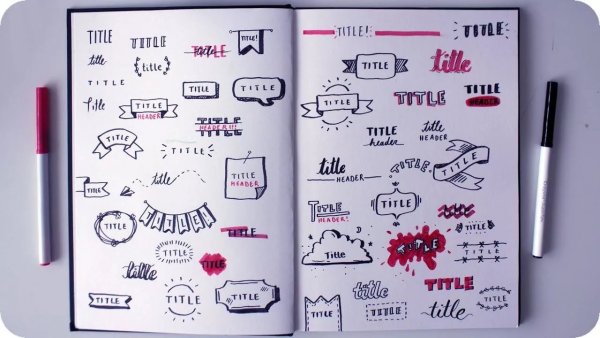 TITLE
TITLE
title
TITLE!
title
title
TITLE
TITLE
TITLE
Title
TITLE
HEADER
TITLE
HEADER!!!
TITLE
TITLE
TITLE
HEADER
TITLE
title
TITLE
TITLE!
TITLE
TITLE
title
TITLE
TITLE
TITLE
TITLE
TITLE!
TITLE
TITLE
title
TITLE
TITLE
TITLE
HEADER
TITLE
header
title
HEADER
title
HEADER
TITLE
TITLE
TITLE
HEADER!
TITLE
TITLE
Title
TITLE
TITLE
title
TITLE
TITLE
TITLE
title
TITLE